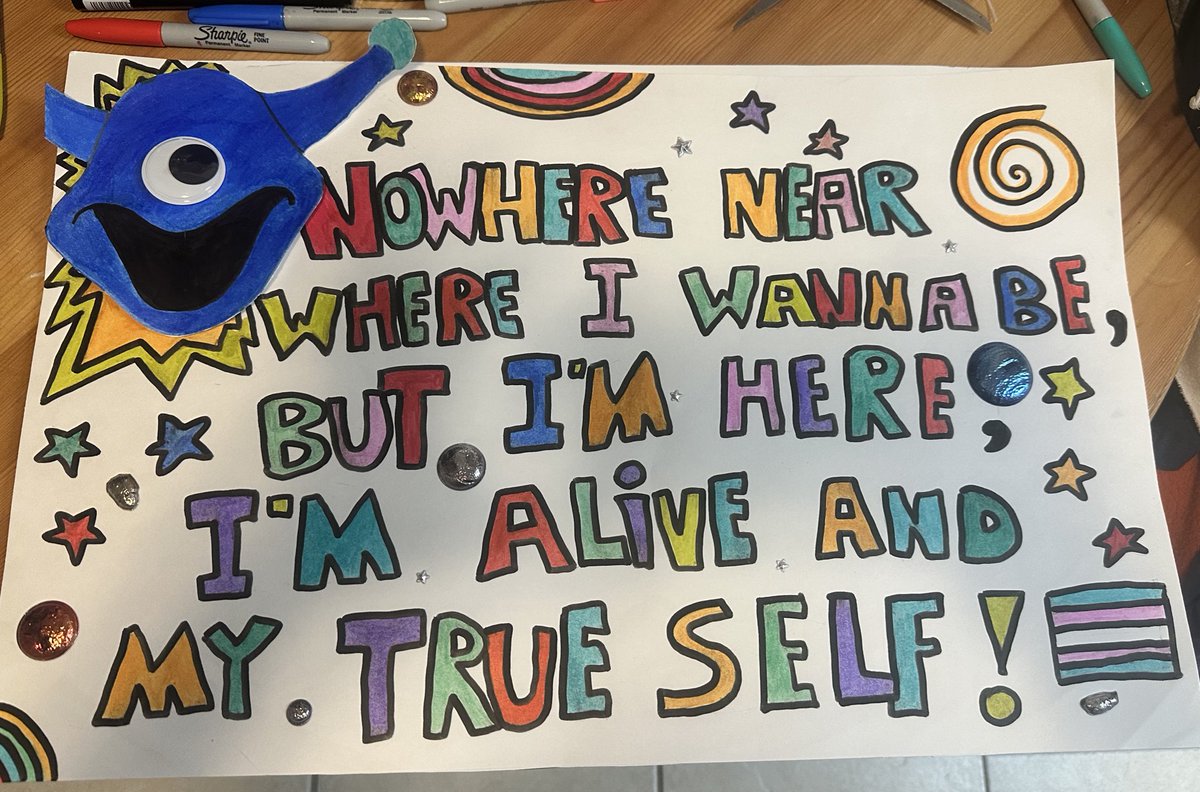 Sharpie FINE POINT
Permanent Marker
NOWHERE NEAR
WHERE I WANNA BE,
BUT I'M HERE,
I'M ALiVE AND
MY TRUE SELF!